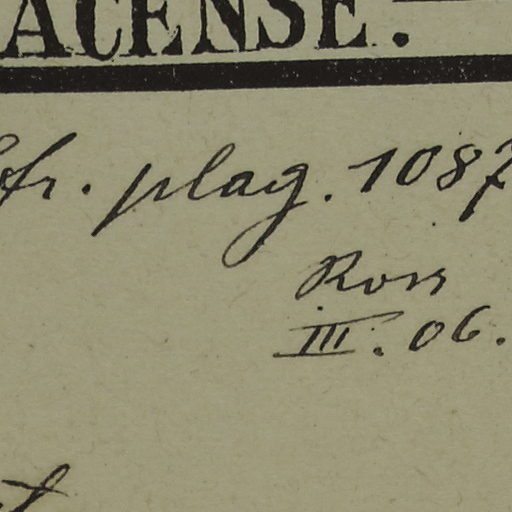 ACENSE.
cfr. plag. 1087
Ross
III. 06.